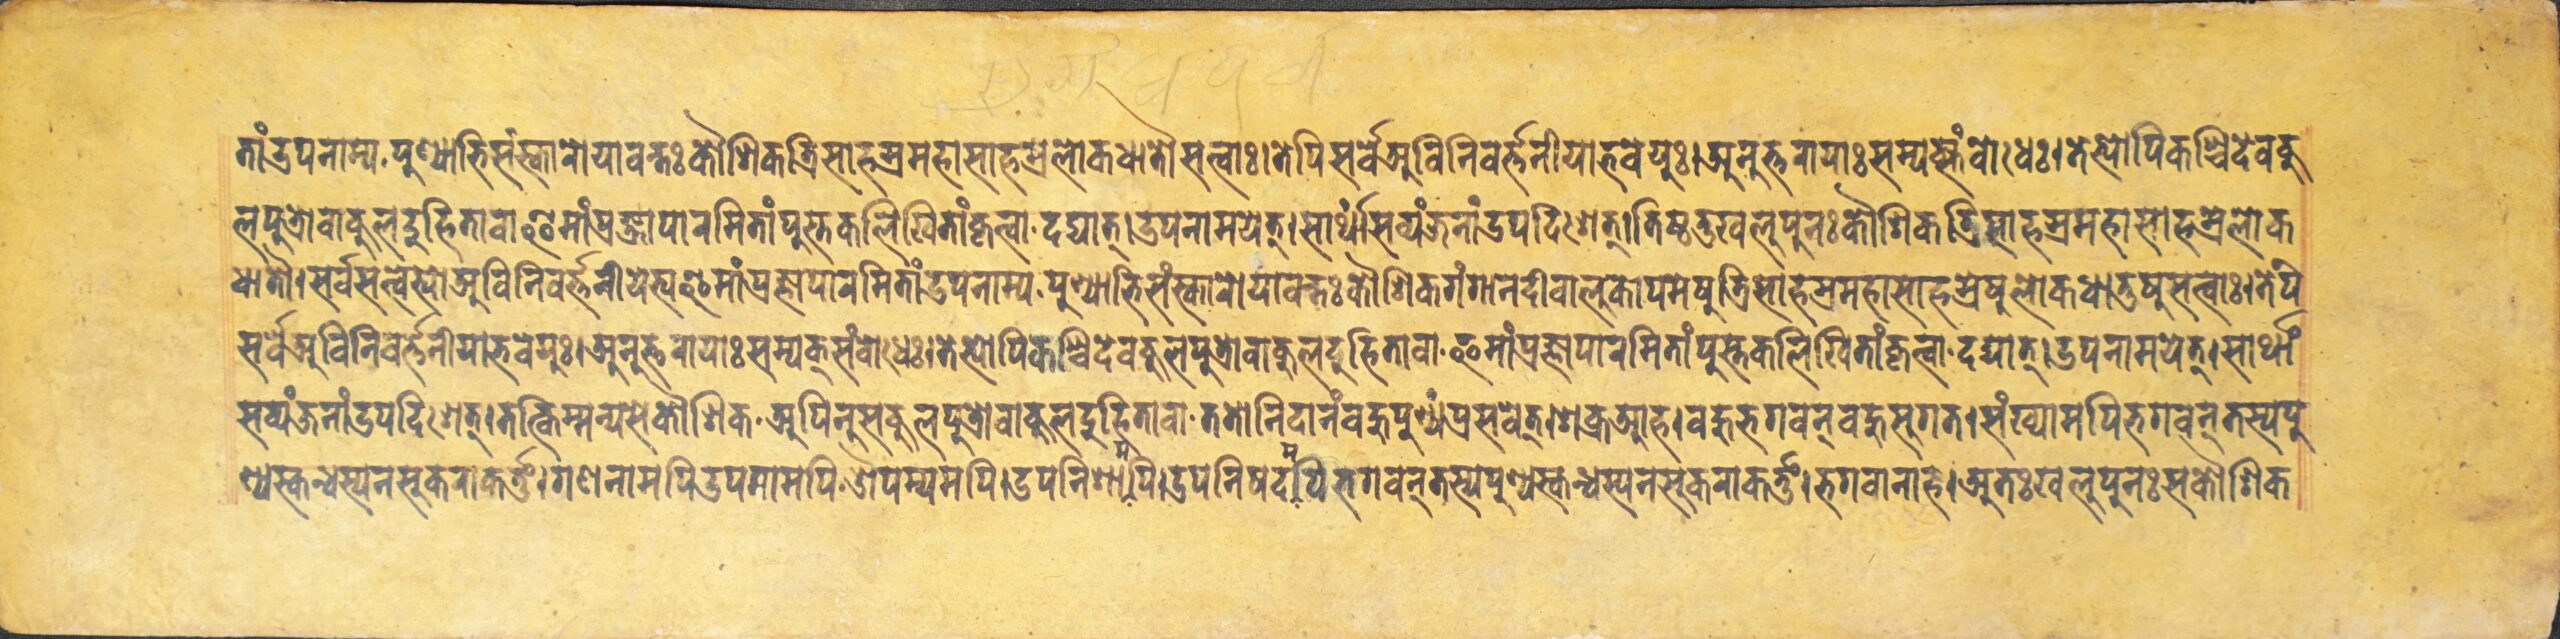 तां उपनाम्य ‧ पुण्याभिसंस्कारो यावन्तः कौशिक त्रिसाहस्रमहासाहस्रलोकधातौ सत्त्वाः । तेपि सर्वे अविनिवर्त्तनीया भवेयुः । अनुत्तरायाः सम्यक्संबोधेः । तेभ्योपि कश्चिदेव कु
लपुत्रो वा कुलदुहिता वा इमां प्रज्ञापारमितां पुस्तकलिखितां कृत्वा ‧ दद्यात् । उपनामयेत् । सार्थां सव्यंजनां उपदिशेत् । तिष्ठतु खलु पुनः कौशिक त्रिसाहस्रमहासाहस्रे लोक
धातौ । सर्वसत्वेभ्यो अविनिवर्त्तनीयेभ्य इमां प्रज्ञापारमितां उपनाम्य ‧ पुण्याभिसंस्कारो यावन्तः कौशिक गंगानदीवालुकोपमेषु त्रिसाहस्रमहासाहस्रेषु लोकधातुषु सत्वाः । तेपि
सर्वे अविनिवर्त्तनीया भवेयुः । अनुत्तरायाः सम्यक्संबोधेः । तेभ्योपि कश्चिदेव कुलपुत्रो वा कुलदुहिता वा ‧ इमां प्रज्ञापारमितां पुस्तकलिखितां कृत्वा ‧ दद्यात् । उपनामयेत् । सार्थां
सव्यंजनां उपदिशेत् । तत्किम्मन्यसे कौशिक ‧ अपि नु स कुलपुत्रो वा कुलदुहिता वा ‧ ततो निदानं बहु पुण्यं प्रसवेत् । शक्र आह । बहु भगवन् बहु सुगत । संख्यामपि भगवन् तस्य पु
ण्यस्कन्धस्य न सुकरा कर्त्तुं । गणनामपि उपमामपि ‧ औपम्यमपि । उपनिशामपि । उपनिषदमपि भगवन् तस्य पुण्यस्कन्धस्य न सुकरा कर्त्तुं । भगवानाह । अतः खलु पुनः स कौशिक